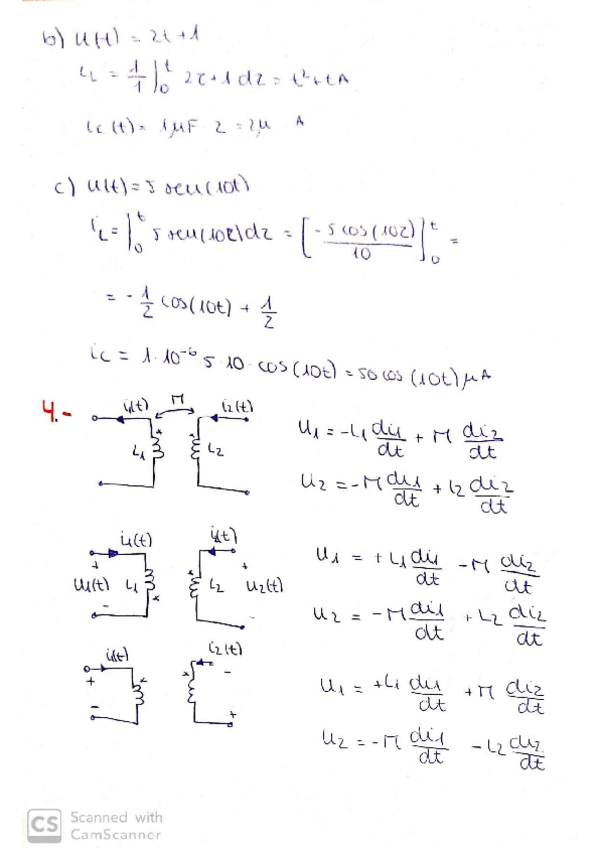 b) u(t) = 2t + 1
iL = 1/1 ∫₀ᵗ 2τ+1 dτ = t²+t A
ic(t) = 1μF 2 = 2μ A
c) u(t) = 5 sen(10t)
iL = ∫₀ᵗ 5 sen(10τ)dτ = [-5 cos(10τ)/10]₀ᵗ =
= -1/2 cos(10t) + 1/2
ic = 1·10⁻⁶ 5·10·cos(10t) = 50 cos(10t) μA
4.-
i1(t) M i2(t)
L1 L2
u1 = -L1 di1/dt + M di2/dt
u2 = -M di1/dt + L2 di2/dt
i1(t) i2(t)
+ +
u1(t) L1 L2 u2(t)
- -
u1 = +L1 di1/dt - M di2/dt
u2 = -M di1/dt + L2 di2/dt
i1(t) i2(t)
+ -
- +
u1 = +L1 di1/dt + M di2/dt
u2 = -M di1/dt - L2 di2/dt
CS Scanned with
CamScanner